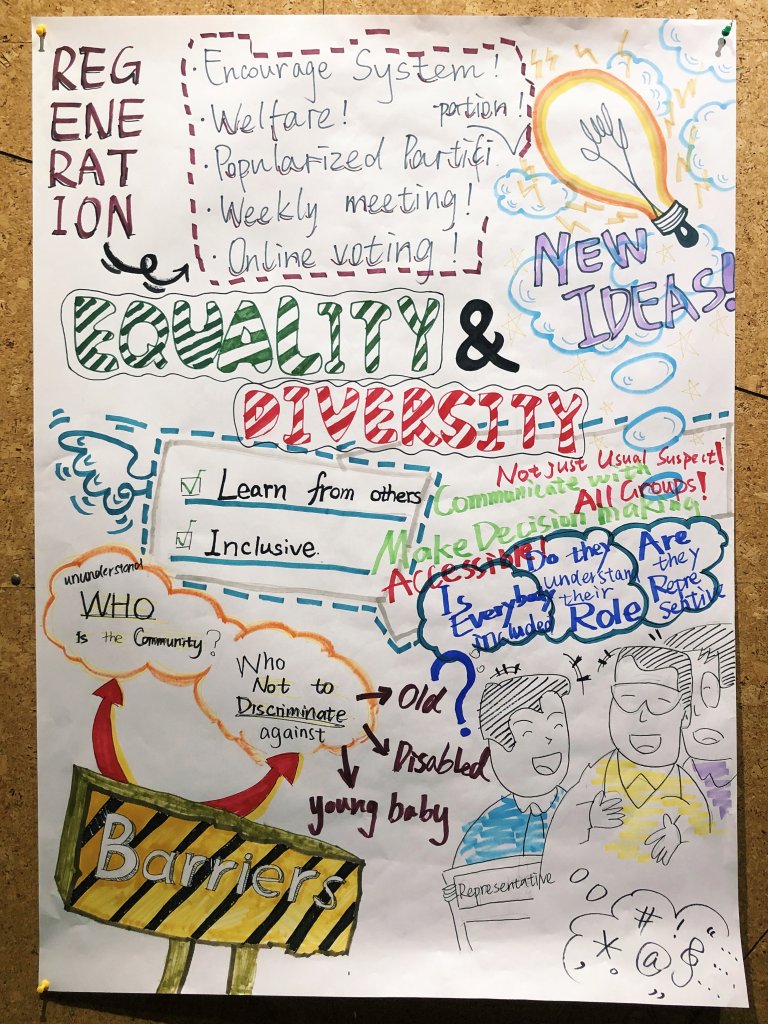 REG
ENE
RAT
ION
· Encourage System!
· Welfare!
· Popularized Partici
pation!
· Weekly meeting!
· Online voting!
NEW
IDEAS!
EQUALITY &
DIVERSITY
Learn from others
Inclusive.
Not just Usual Suspect!
Communicate with
All Groups!
Make Decision making
Accessible!
Is
Everybody
included
Do they
understan
their
Role
Are
they
Repre
sentive
?
ununderstand
WHO
is the Community?
Who
Not to
Discriminate
against
Old
Disabled
young baby
Barriers
Representative
#!
*@&